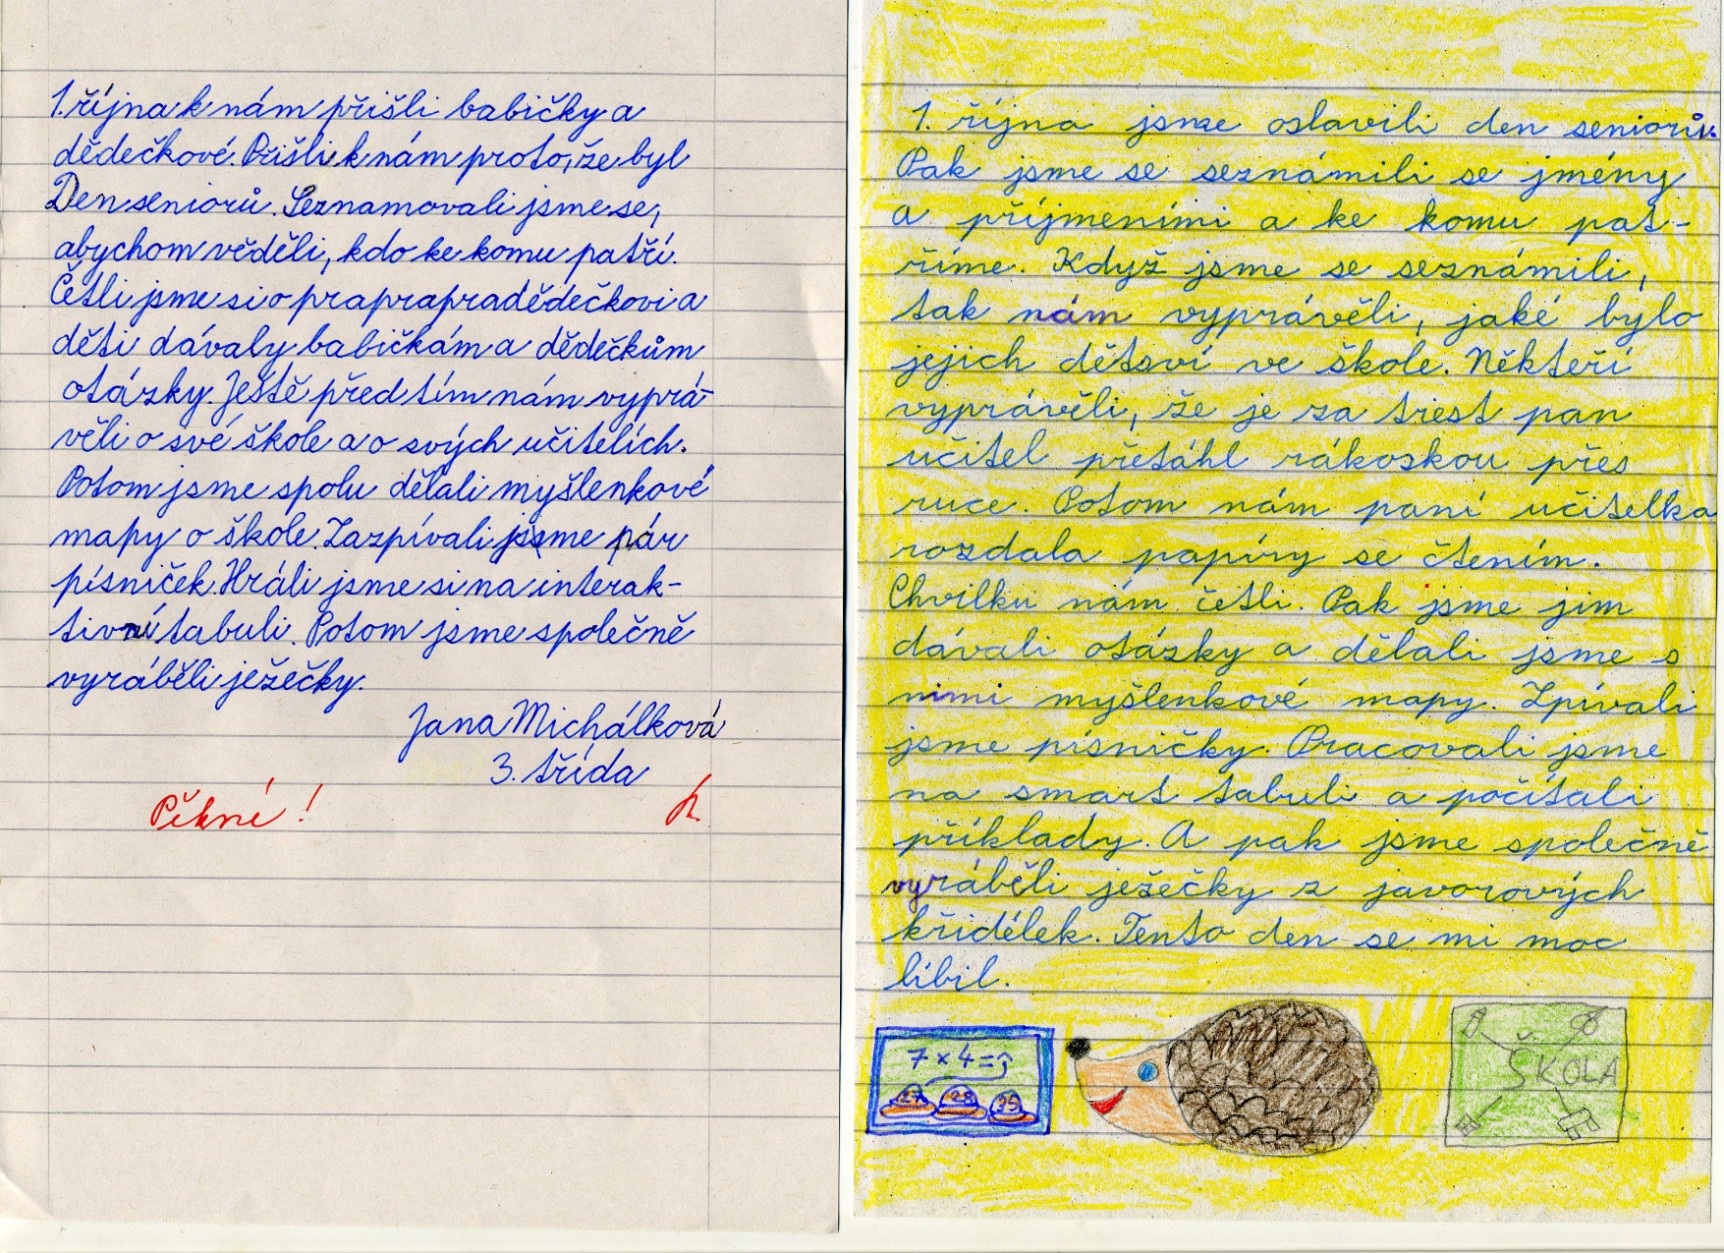 1. října k nám přišli babičky a
dědečkové. Přišli k nám proto, že byl
Den seniorů. Seznamovali jsme se,
abychom věděli, kdo ke komu patří.
Četli jsme si o prapraprapradědečkovi a
děti dávaly babičkám a dědečkům
otázky. Ještě před tím nám vyprá-
věli o své škole a o svých učitelích.
Potom jsme spolu dělali myšlenkové
mapy o škole. Zazpívali jsme pár
písniček. Hráli jsme si na interak-
tivní tabuli. Potom jsme společně
vyráběli ježečky.
Jana Michálková
3. třída
Pěkné!
1. října jsme oslavili den seniorův.
Pak jsme se seznámili se jmény
a příjmeními a ke komu pat-
říme. Když jsme se seznámili,
tak nám vyprávěli, jaké bylo
jejich dětsví ve škole. Někteří
vyprávěli, že je za trest pan
učitel přetáhl rákoskou přes
ruce. Potom nám paní učitelka
rozdala papíry se čtením.
Chvilku nám četli. Pak jsme jim
dávali otázky a dělali jsme s
nimi myšlenkové mapy. Zpívali
jsme písničky. Pracovali jsme
na smart tabuli a počítali
příklady. A pak jsme společně
vyráběli ježečky z javorových
křidélek. Tento den se mi moc
líbil.
7 x 4 = ?
27 28 35
ŠKOLA